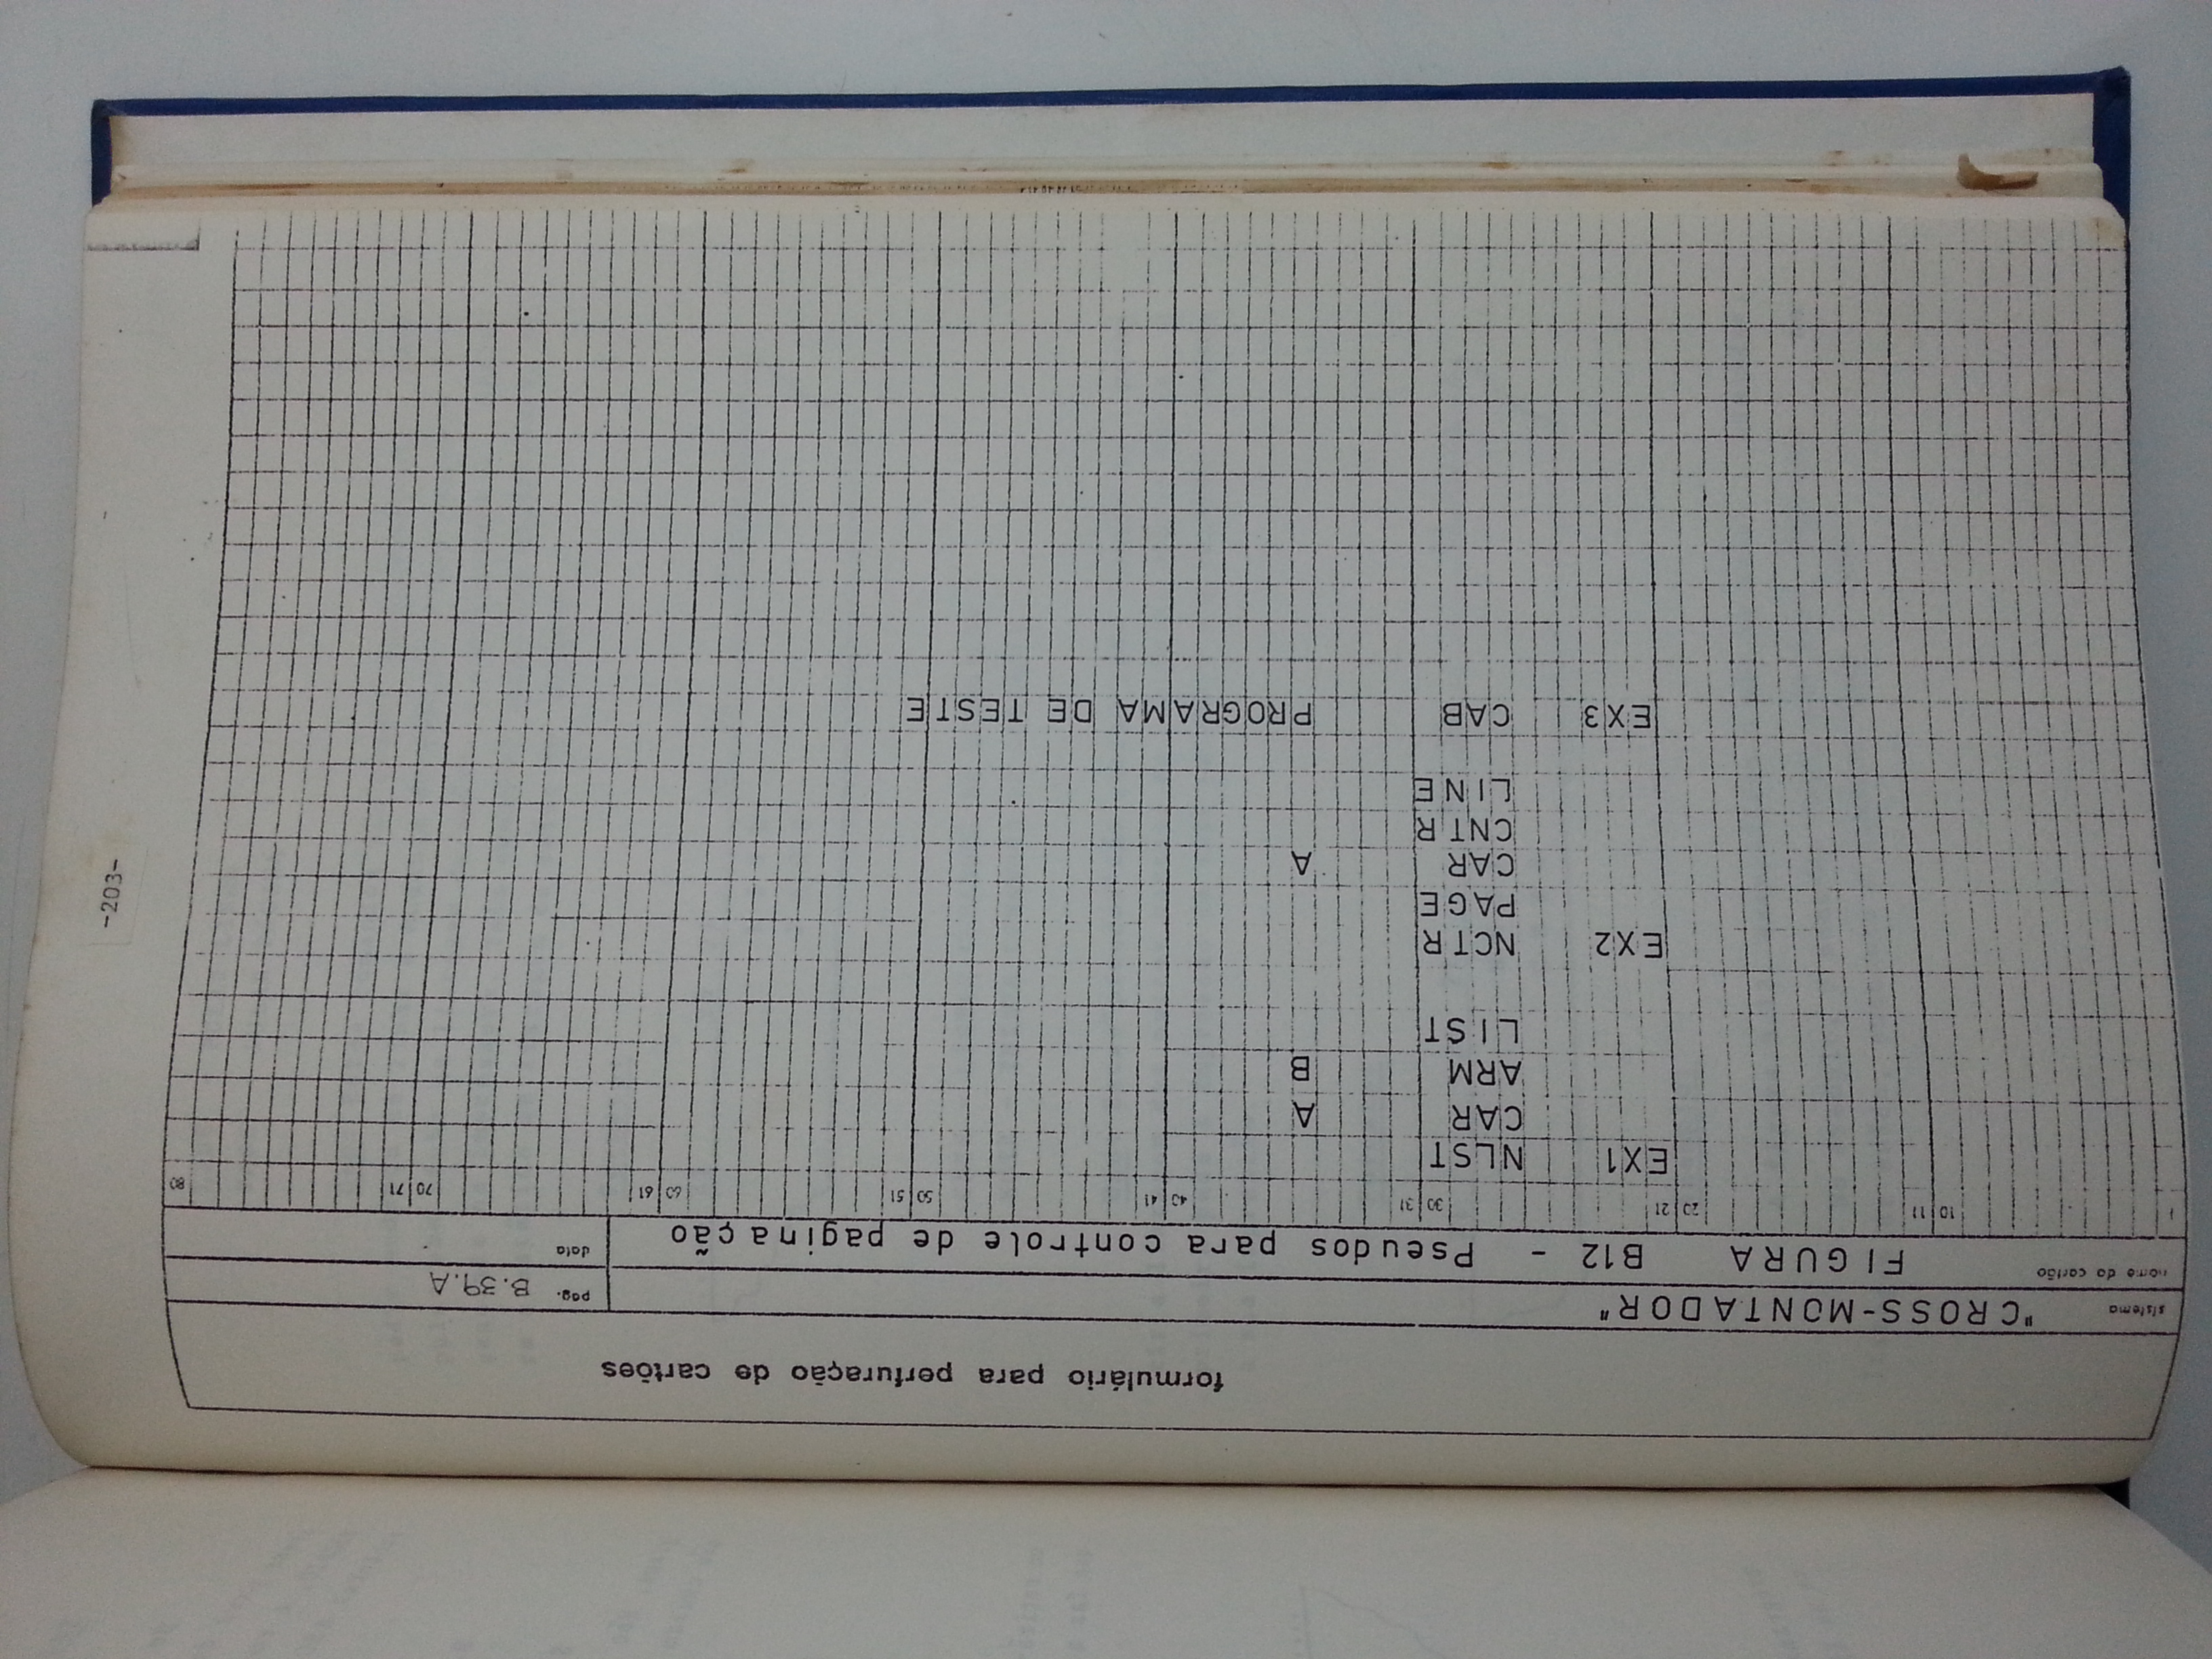 -203-
formulário para perfuração de cartões
sistema "CROSS-MONTADOR"
pág. B.39.A
nome do cartão FIGURA B12 - Pseudos para controle de paginação
data
1 10 11 20 21 30 31 40 41 50 51 60 61 70 71 80
EX1 NLST
CAR A
ARM B
LIST
EX2 NCTR
PAGE
CAR A
CNTR
LINE
EX3 CAB PROGRAMA DE TESTE